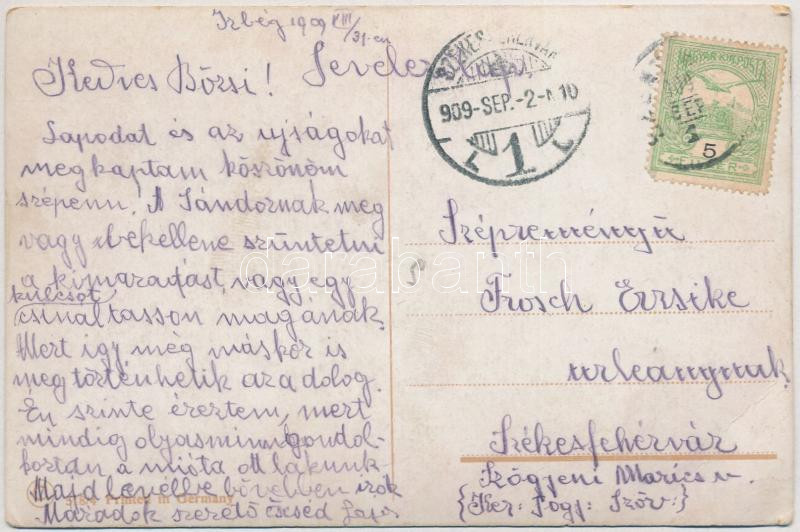 Izbég 1909 VIII/31-én
Kedves Bözsi!
Lapodat és az ujságokat
megkaptam köszönöm
szépenn. A Sándornak meg
vagy bekellene szüntetni
a kimaradást, vagy egy
kulcsot
csináltasson magának.
Mert igy még máskor is
megtörténhetik az a dolog.
Én szinte éreztem, mert
mindig olyasminn gondol-
koztam a mióta ott lakunk.
Majd levélbe bővebben irok
Maradok szerető öcséd Lajos
Printed in Germany
Levelez
SZÉKESFEHÉRVÁR
909-SEP.-2-
1
MAGYAR KIR. POSTA
5
Szépreményü
Frosch Erzsike
urleánynak
Székesfehérvár
Szögyéni Marics u.
{Ker: Fogy: Szöv:}
darabanth